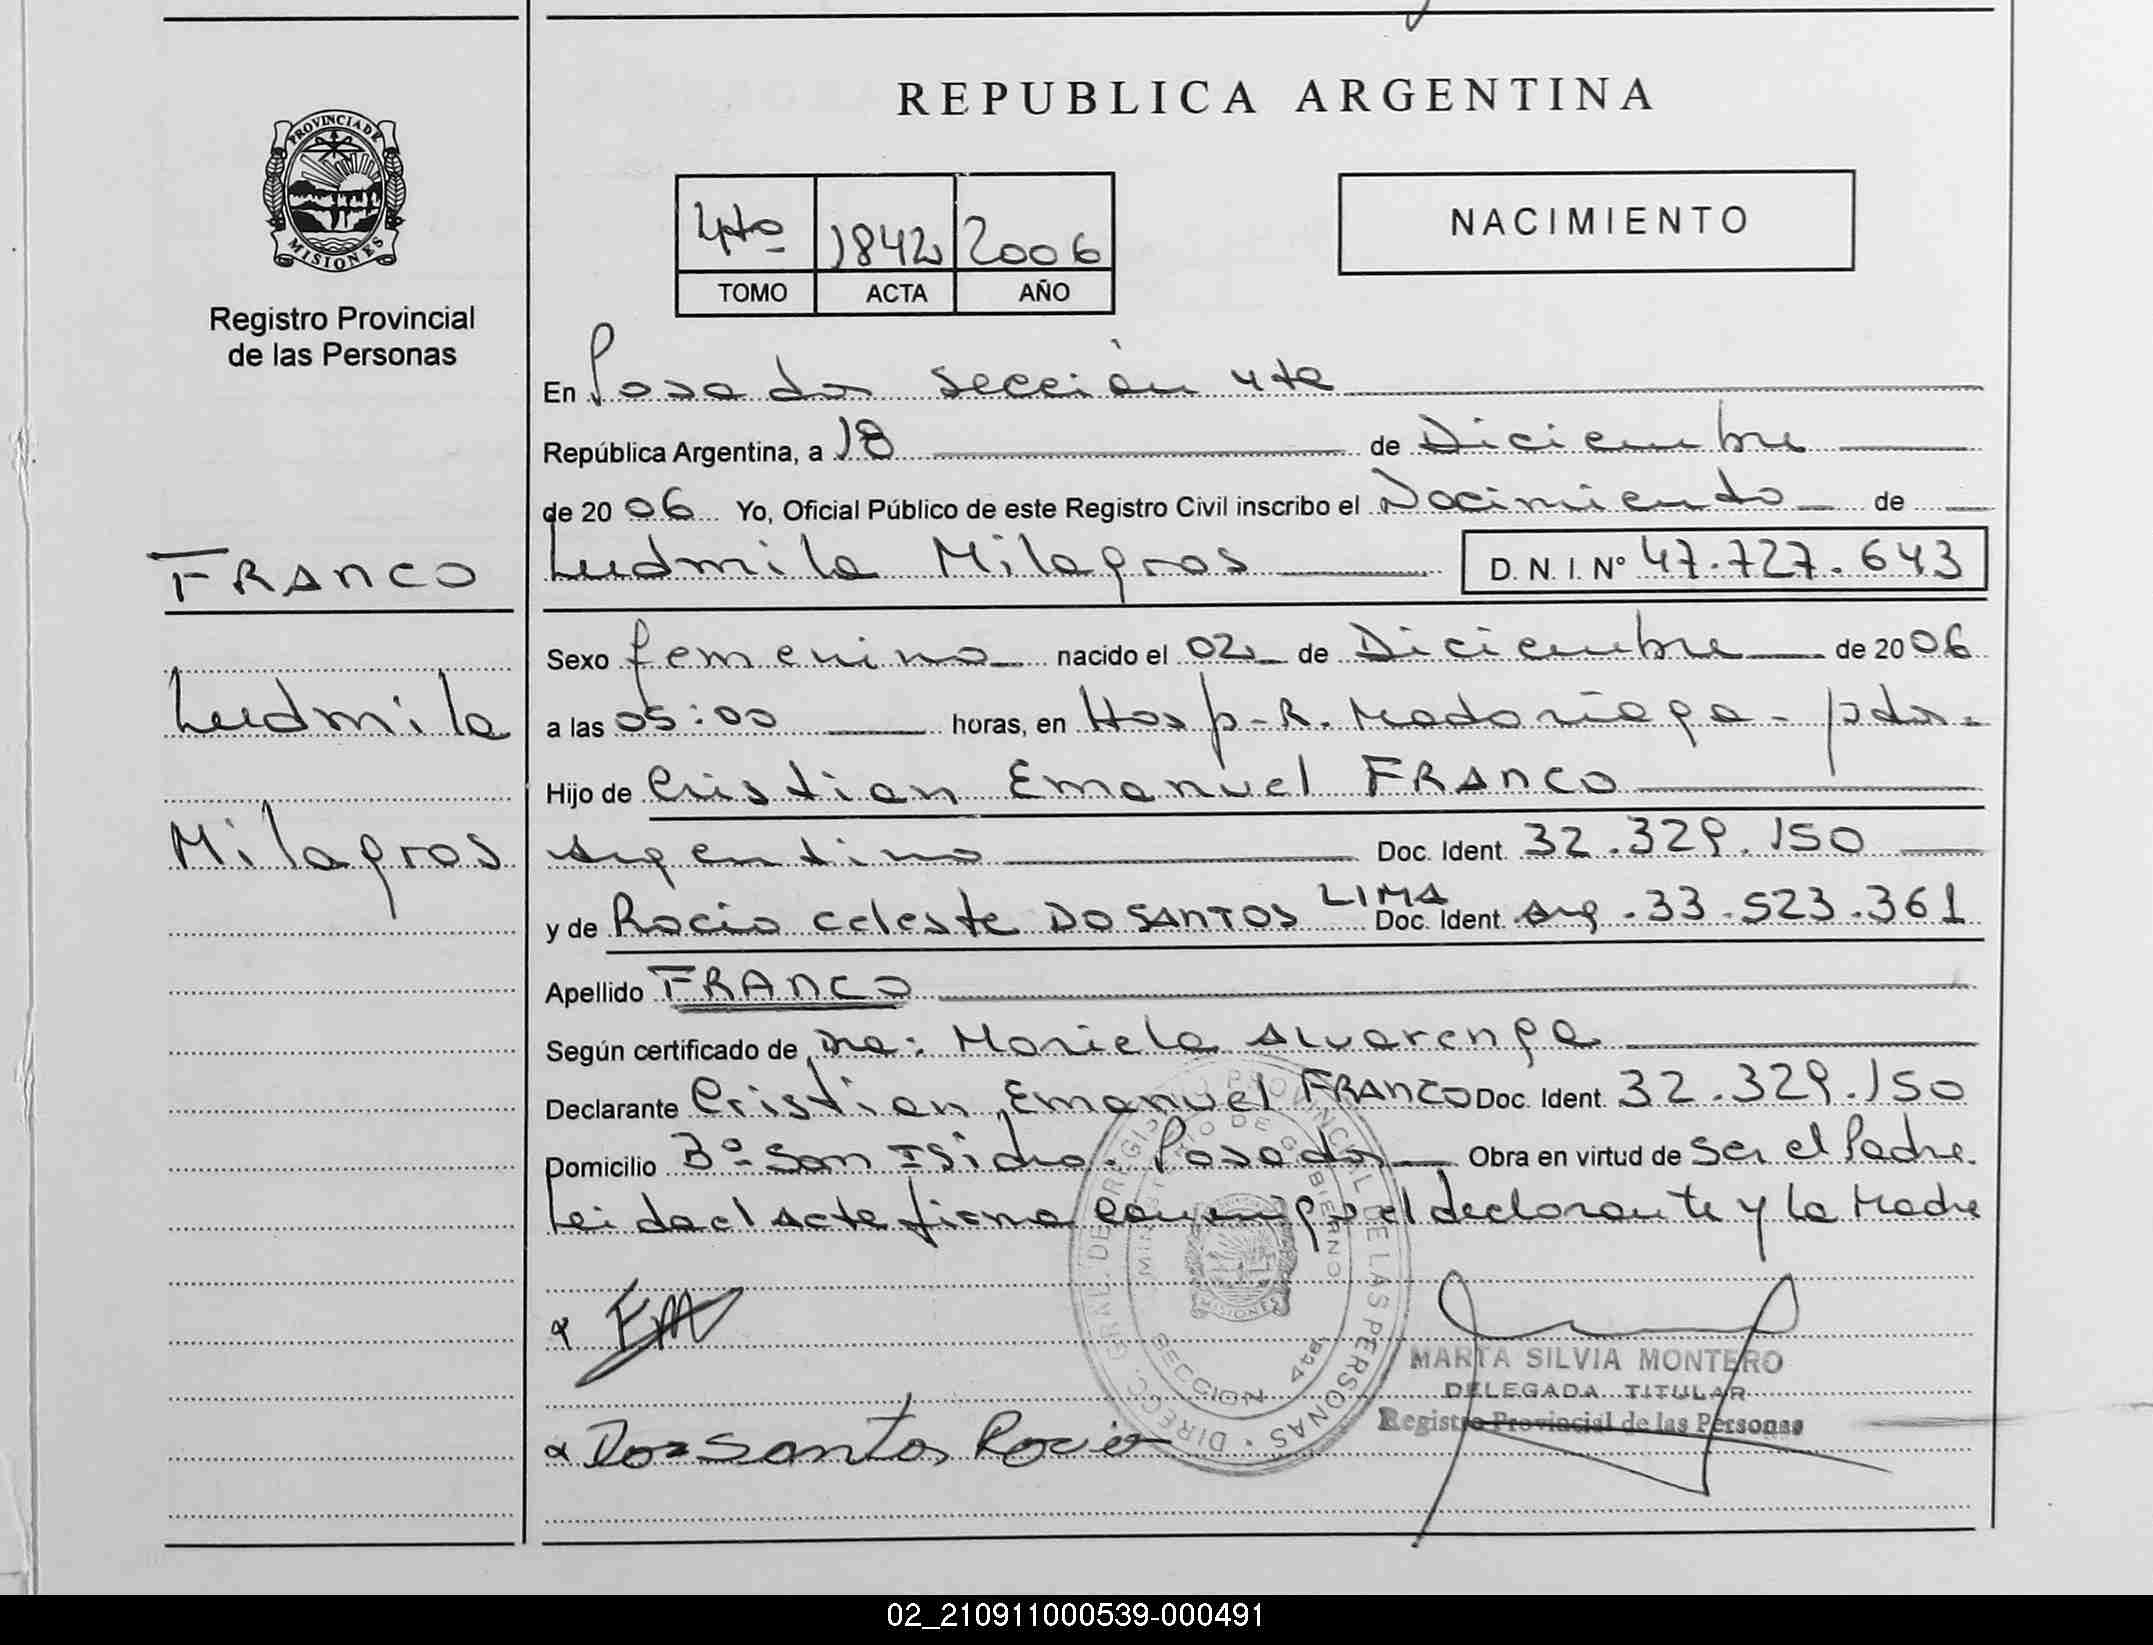 REPUBLICA ARGENTINA
PROVINCIA DE
MISIONES
Registro Provincial
de las Personas
4to 1842 2006
TOMO ACTA AÑO
NACIMIENTO
En Posadas sección 4ta
República Argentina, a 18 de Diciembre
de 2006 Yo, Oficial Público de este Registro Civil inscribo el Nacimiento de
FRANCO
Ludmila Milagros D. N. I. Nº 47.727.643
Sexo femenino nacido el 02 de Diciembre de 2006
Ludmila
a las 05:00 horas, en Hosp. R. Madariaga - pdas.
Hijo de Cristian Emanuel FRANCO
Milagros
Argentino Doc. Ident. 32.329.150
y de Rocio Celeste DO SANTOS LIMA Doc. Ident. Arg. 33.523.361
Apellido FRANCO
Según certificado de Dra: Mariela Alvarenga
Declarante Cristian Emanuel FRANCO Doc. Ident. 32.329.150
Domicilio Bº San Isidro. Posadas Obra en virtud de ser el Padre.
Leida el Acta firma conmigo el declarante y la Madre
DIRECC. GRAL. DE REGISTRO PROVINCIAL DE LAS PERSONAS
MINISTERIO DE GOBIERNO
MISIONES
SECCION 4ta.
MARTA SILVIA MONTERO
DELEGADA TITULAR
Registro Provincial de las Personas
Dos santos Rocio
02_210911000539-000491